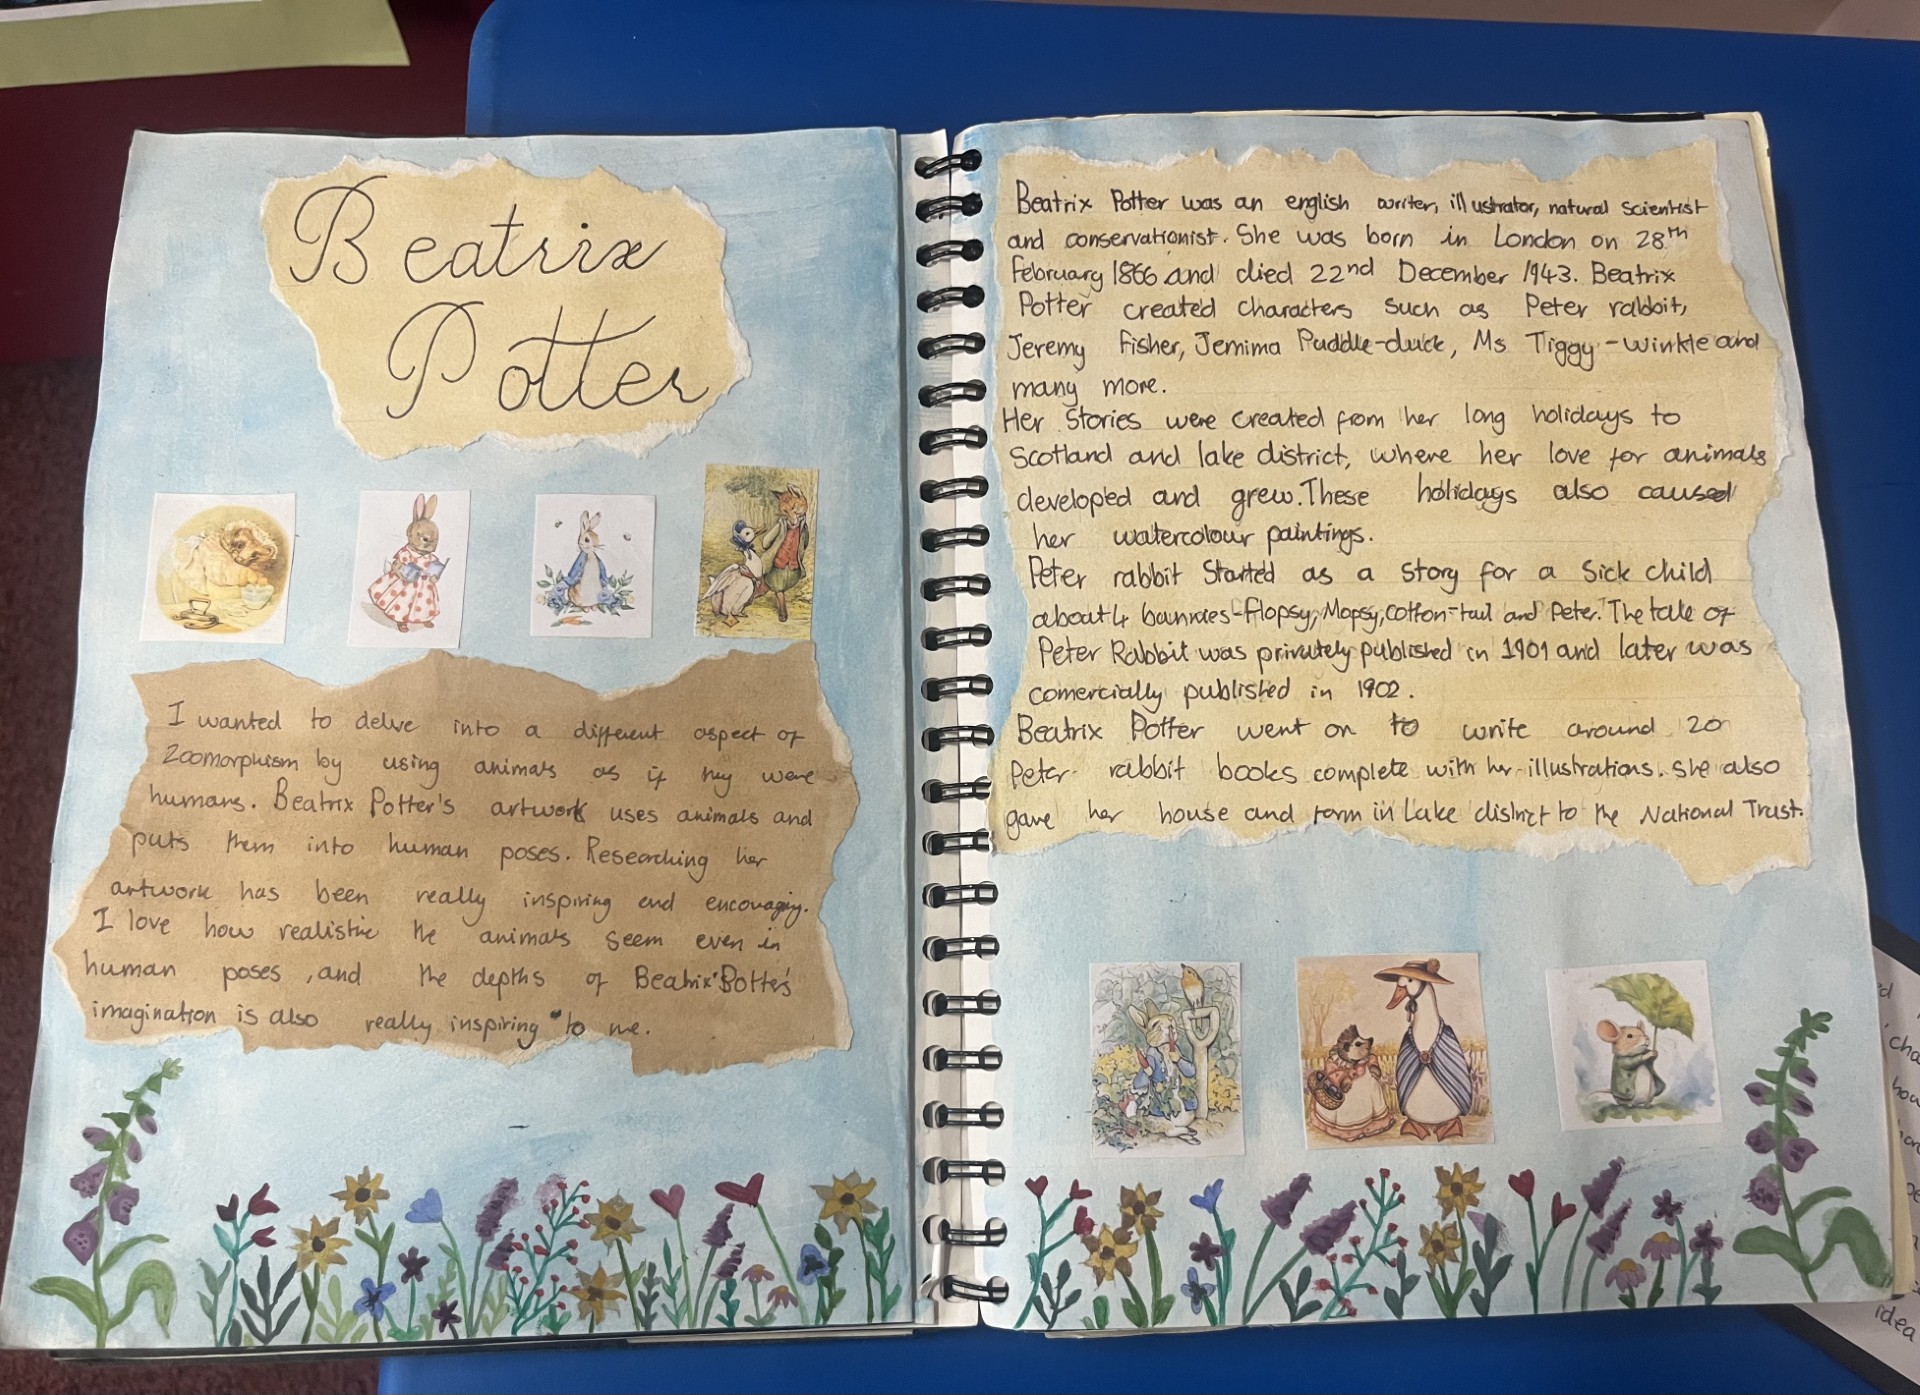 Beatrix
Potter
I wanted to delve into a different aspect of
Zoomorphism by using animals as if they were
humans. Beatrix Potter's artwork uses animals and
puts them into human poses. Researching her
artwork has been really inspiring and encouraging.
I love how realistic the animals seem even in
human poses, and the depths of Beatrix Potter's
imagination is also really inspiring to me.
Beatrix Potter was an english writer, illustrator, natural scientist
and conservationist. She was born in London on 28th
February 1866 and died 22nd December 1943. Beatrix
Potter created characters such as Peter rabbit,
Jeremy Fisher, Jemima Puddle-duck, Ms Tiggy-winkle and
many more.
Her stories were created from her long holidays to
Scotland and lake district, where her love for animals
developed and grew. These holidays also caused
her watercolour paintings.
Peter rabbit Started as a story for a sick child
about 4 bunnies-flopsy, Mopsy, cotton-tail and Peter. The tale of
Peter Rabbit was privately published in 1901 and later was
comercially published in 1902.
Beatrix Potter went on to write around 20
Peter rabbit books complete with her illustrations. she also
gave her house and farm in Lake district to the National Trust.
idea